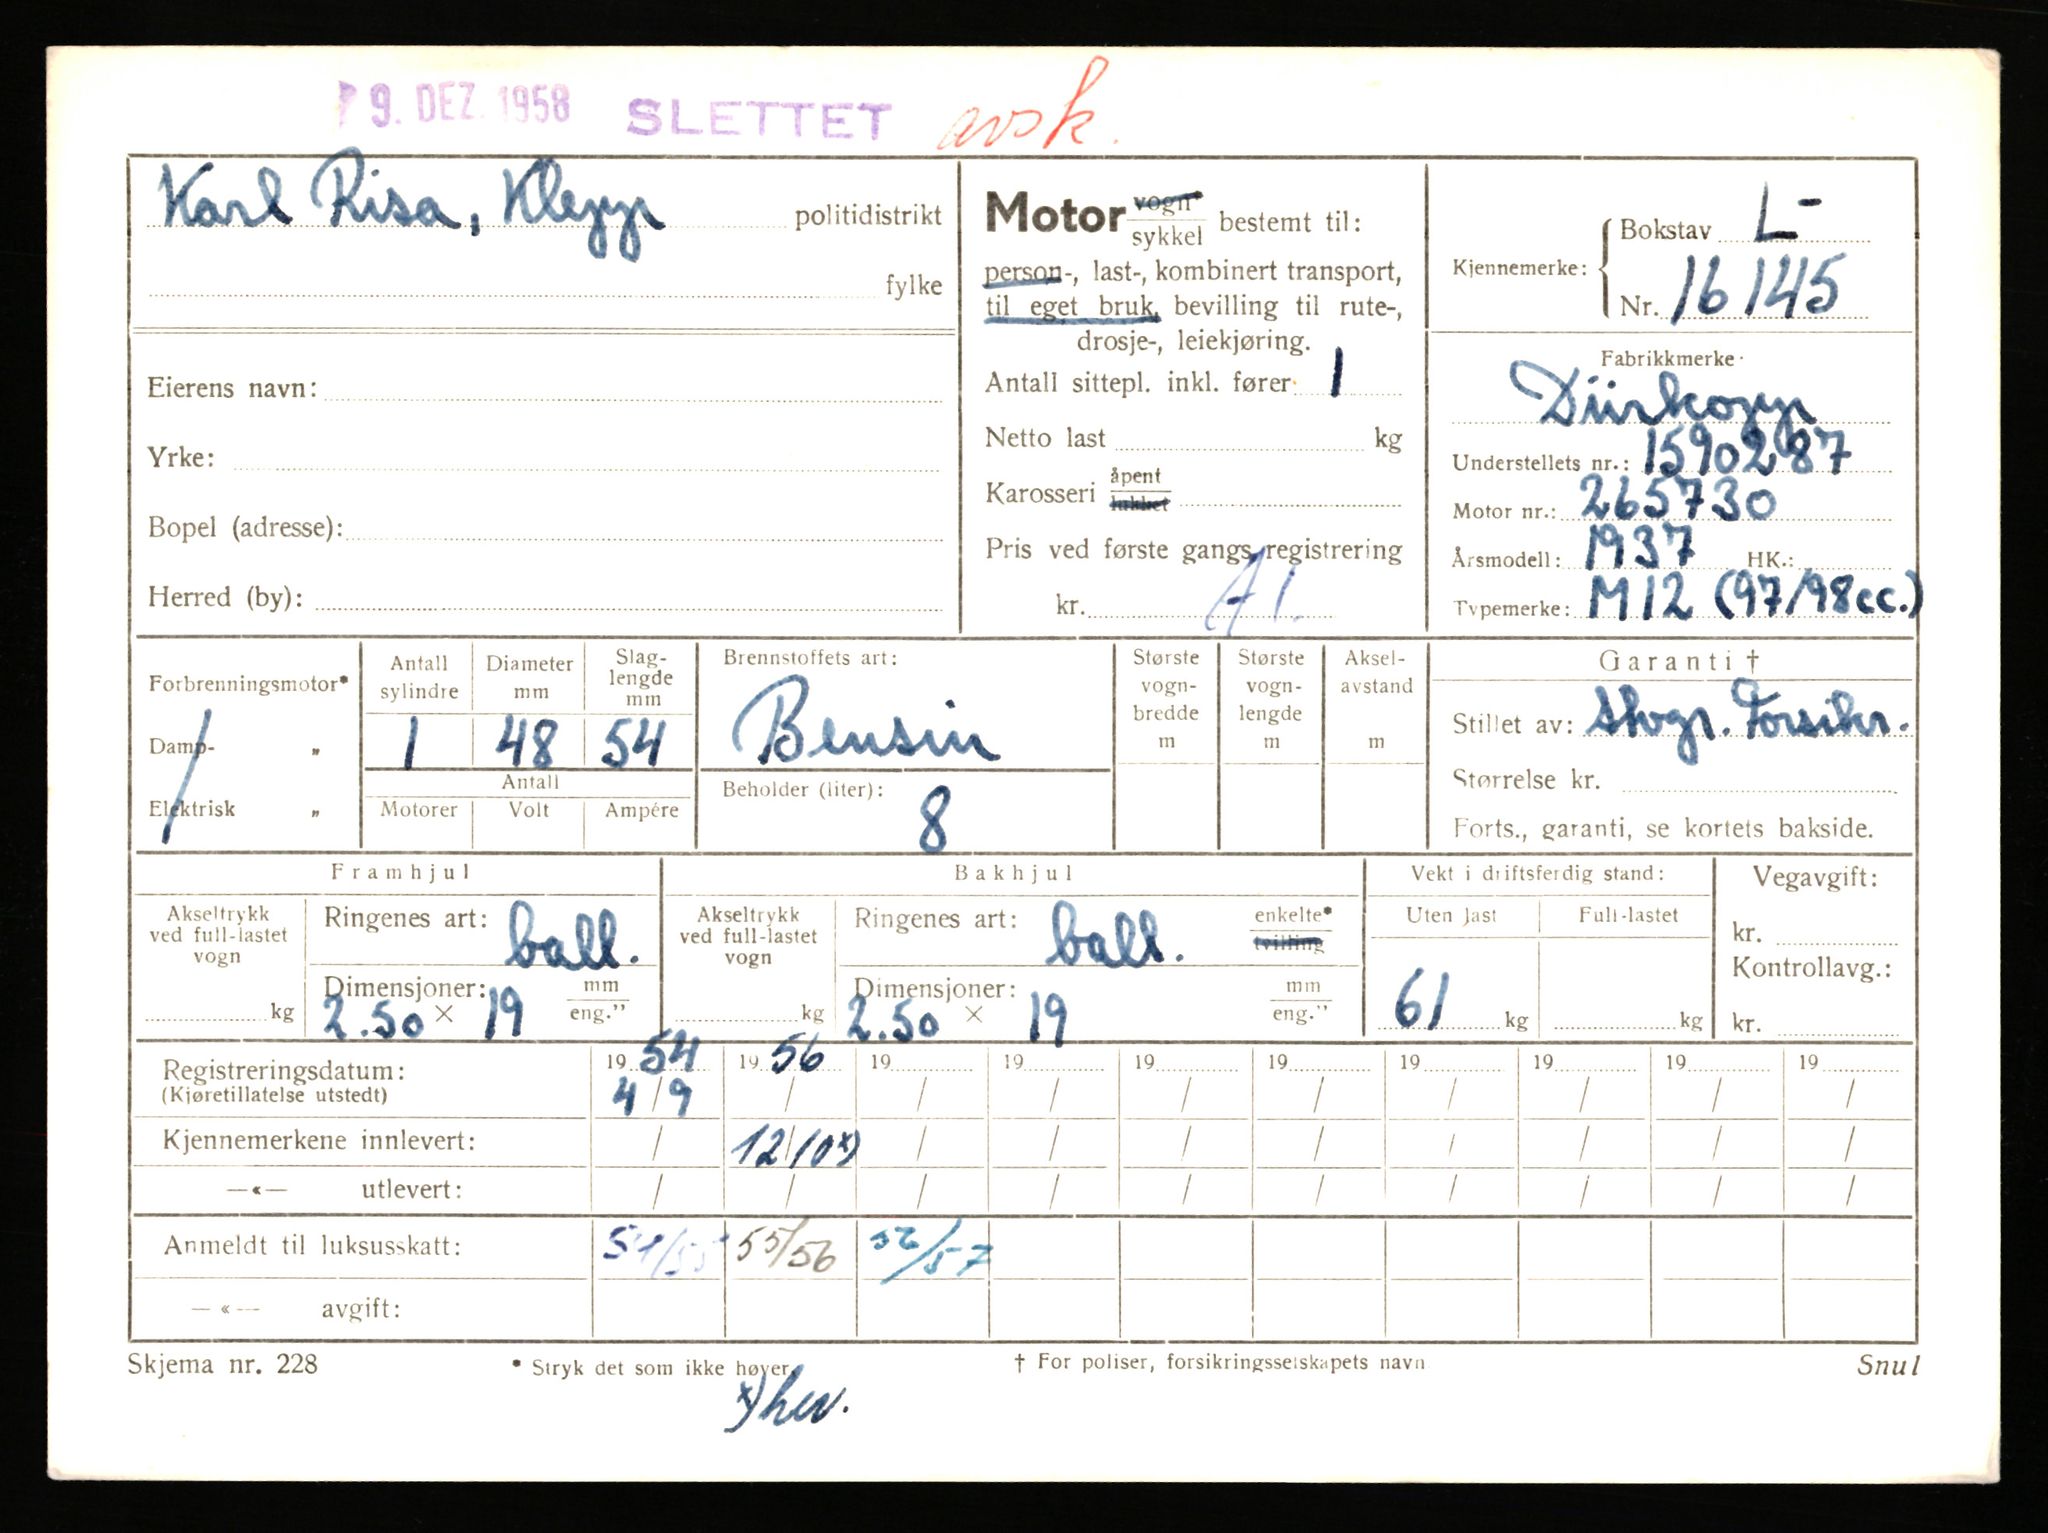 9. DEZ. 1958 SLETTET avsk.
Karl Risa, Klepp politidistrikt
fylke
Eierens navn:
Yrke:
Bopel (adresse):
Herred (by):
Motor vogn/sykkel bestemt til:
person-, last-, kombinert transport,
til eget bruk, bevilling til rute-,
drosje-, leiekjøring.
Antall sittepl. inkl. fører 1
Netto last kg
Karosseri åpent/lukket
Pris ved første gangs registrering
kr. A1.
Kjennemerke: Bokstav L-
Nr. 16145
Fabrikkmerke
Dürkopp
Understellets nr.: 1590287
Motor nr.: 265730
Årsmodell: 1937 HK.:
Typemerke: M12 (97/98cc.)
Forbrenningsmotor*
Damp- „
Elektrisk „
Antall sylindre 1
Diameter mm 48
Slag-lengde mm 54
Antall
Motorer Volt Ampére
Brennstoffets art:
Bensin
Beholder (liter):
8
Største vogn-bredde m
Største vogn-lengde m
Aksel-avstand m
Garanti †
Stillet av: Forsikr.
Størrelse kr.
Forts., garanti, se kortets bakside.
Framhjul
Akseltrykk ved full-lastet vogn
kg
Ringenes art: ball.
Dimensjoner: mm/eng."
2.50 × 19
Bakhjul
Akseltrykk ved full-lastet vogn
kg
Ringenes art: ball. enkelte*/tvilling
Dimensjoner: mm/eng."
2.50 × 19
Vekt i driftsferdig stand:
Uten last Full-lastet
61 kg kg
Vegavgift:
kr.
Kontrollavg.:
kr.
Registreringsdatum: 19 54 19 56 19 19 19 19 19 19 19 19
(Kjøretillatelse utstedt) 4/9 / / / / / / / / /
Kjennemerkene innlevert: / 12/10x) / / / / / / / /
—«— utlevert: / / / / / / / / / /
Anmeldt til luksusskatt: 54/55 55/56 56/57
—«— avgift:
Skjema nr. 228 * Stryk det som ikke høver. † For poliser, forsikringsselskapets navn Snul
x) hev.